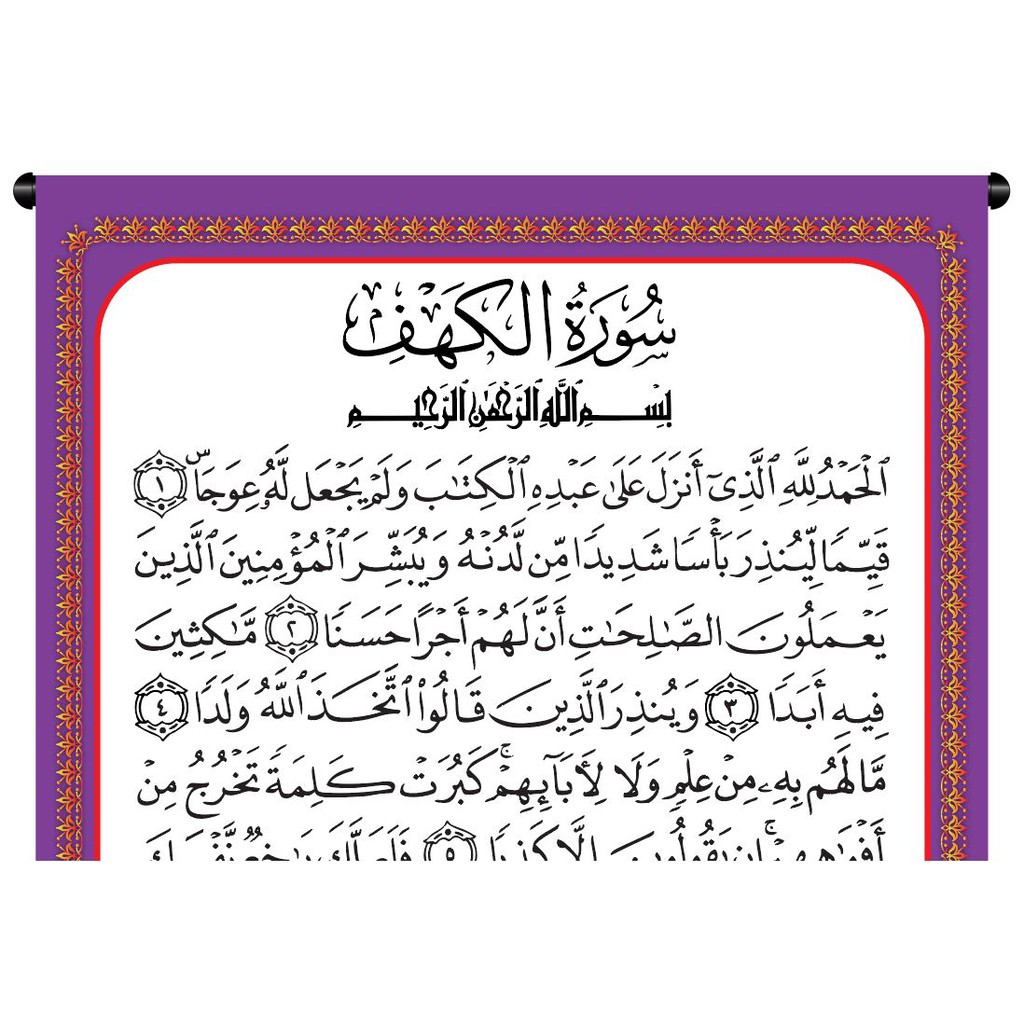 سُورَةُ الكَهْفِ
بِسْمِ ٱللَّهِ ٱلرَّحْمَٰنِ ٱلرَّحِيمِ
ٱلْحَمْدُ لِلَّهِ ٱلَّذِىٓ أَنزَلَ عَلَىٰ عَبْدِهِ ٱلْكِتَٰبَ وَلَمْ يَجْعَل لَّهُۥ عِوَجَاۜ ١
قَيِّمًا لِّيُنذِرَ بَأْسًا شَدِيدًا مِّن لَّدُنْهُ وَيُبَشِّرَ ٱلْمُؤْمِنِينَ ٱلَّذِينَ
يَعْمَلُونَ الصَّٰلِحَٰتِ أَنَّ لَهُمْ أَجْرًا حَسَنًا ٢ مَّٰكِثِينَ
فِيهِ أَبَدًا ٣ وَيُنذِرَ ٱلَّذِينَ قَالُوا۟ ٱتَّخَذَ ٱللَّهُ وَلَدًا ٤
مَّا لَهُم بِهِۦ مِنْ عِلْمٍ وَلَا لِأَبَآئِهِمْۚ كَبُرَتْ كَلِمَةً تَخْرُجُ مِنْ
أَفْوَٰهِهِمْۚ إِن يَقُولُونَ إِلَّا كَذِبًا ٥ فَلَعَلَّكَ بَٰخِعٌ نَّفْسَكَ